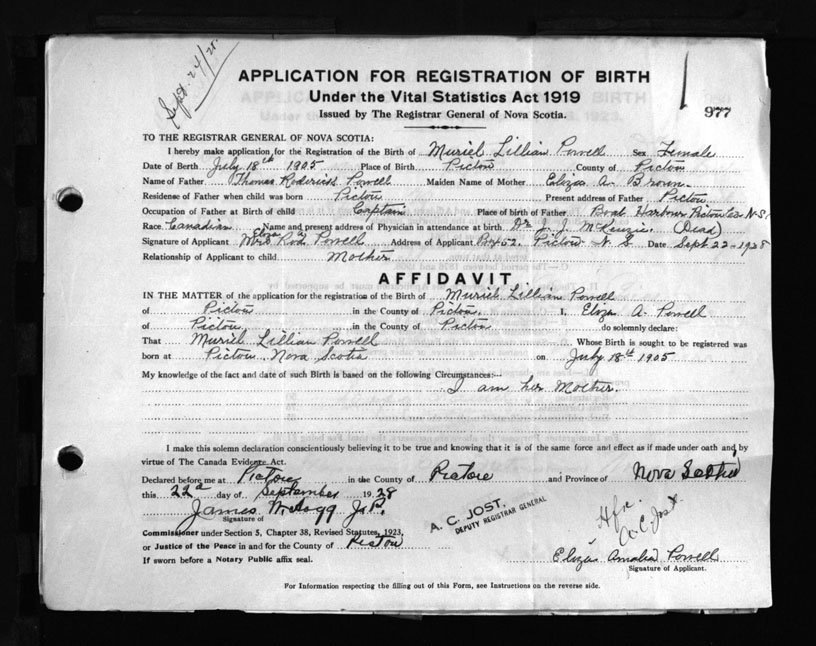 Sept. 24/28.
APPLICATION FOR REGISTRATION OF BIRTH
Under the Vital Statistics Act 1919
Issued by The Registrar General of Nova Scotia.
977
TO THE REGISTRAR GENERAL OF NOVA SCOTIA:
I hereby make application for the Registration of the Birth of Muriel Lillian Powell Sex Female
Date of Birth July 18th 1905 Place of Birth Pictou County of Pictou
Name of Father Thomas Roderick Powell Maiden Name of Mother Eliza A. Brown.
Residense of Father when child was born Pictou Present address of Father Pictou
Occupation of Father at Birth of child Captain Place of birth of Father Boat Harbour Pictou Co N.S.
Race Canadian Name and present address of Physician in attendance at birth Dr J. J. McKenzie. (Dead)
Signature of Applicant Mrs Eliza Rod Powell Address of Applicant Bx 452. Pictou N. S Date Sept. 22-1928
Relationship of Applicant to child Mother
AFFIDAVIT
IN THE MATTER of the application for the registration of the Birth of Muriel Lillian Powell
of Pictou in the County of Pictou. I, Eliza A. Powell
of Pictou in the County of Pictou do solemnly declare:
That Muriel Lillian Powell Whose Birth is sought to be registered was
born at Pictou, Nova Scotia on July 18th 1905
My knowledge of the fact and date of such Birth is based on the following Circumstances:—
I am her Mother.
I make this solemn declaration conscientiously believing it to be true and knowing that it is of the same force and effect as if made under oath and by
virtue of The Canada Evidence Act.
Declared before me at Pictou in the County of Pictou and Province of Nova Scotia
this 22d day of September 1928
James J.P.
Signature of
A. C. JOST.
DEPUTY REGISTRAR GENERAL
A.C. Jost.
Commissioner under Section 5, Chapter 38, Revised Statutes, 1923,
or Justice of the Peace in and for the County of Pictou
If sworn before a Notary Public affix seal.
Eliza Amalia Powell
Signature of Applicant.
For Information respecting the filling out of this Form, see Instructions on the reverse side.